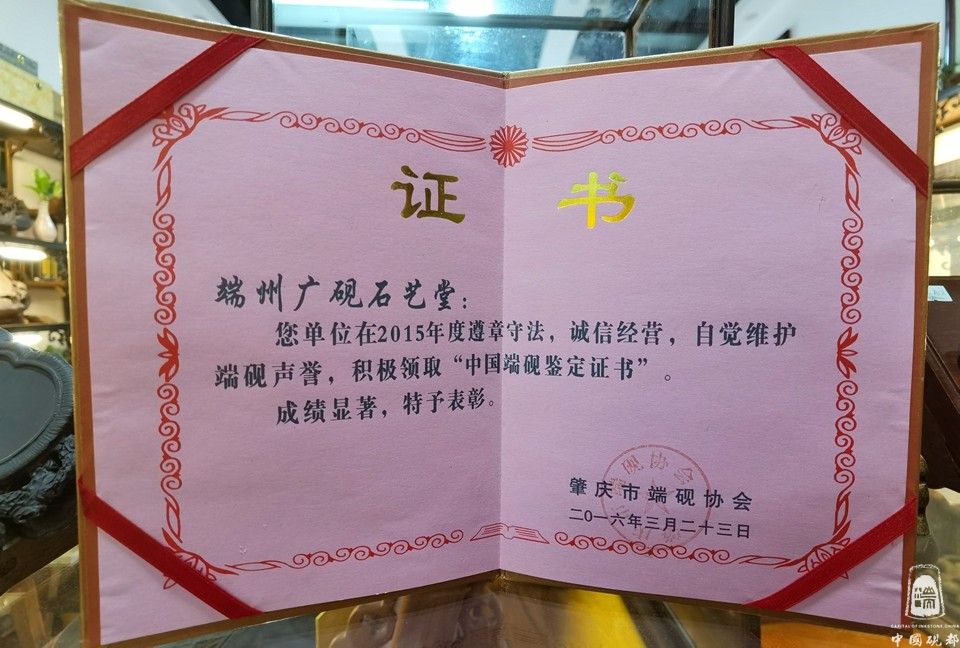 证 书
端州广砚石艺堂：
您单位在2015年度遵章守法，诚信经营，自觉维护
端砚声誉，积极领取“中国端砚鉴定证书”。
成绩显著，特予表彰。
肇庆市端砚协会
二〇一六年三月二十三日
端
CAPITAL OF INKSTONE, CHINA
中國硯都